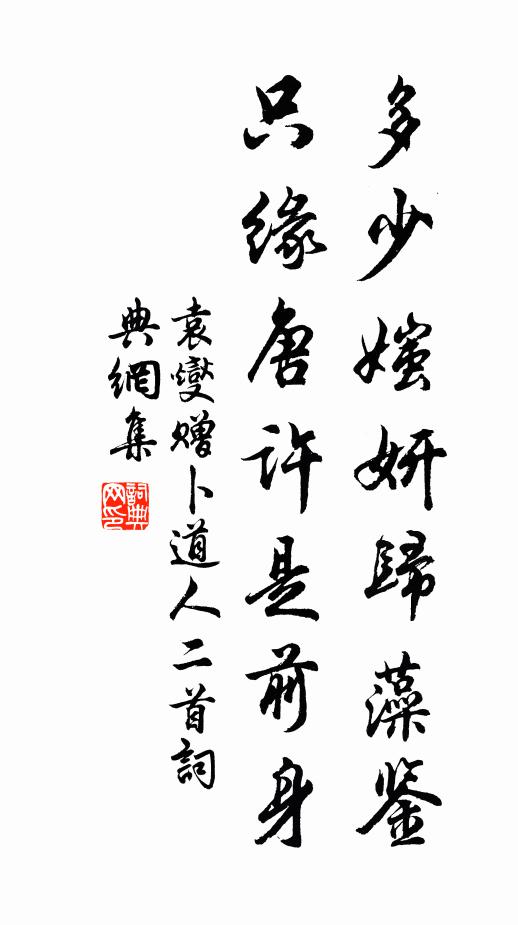 多少媸妍歸藻鉴
只緣唐許是前身
袁燮赠卜道人二首詞
典網集
詞典网印